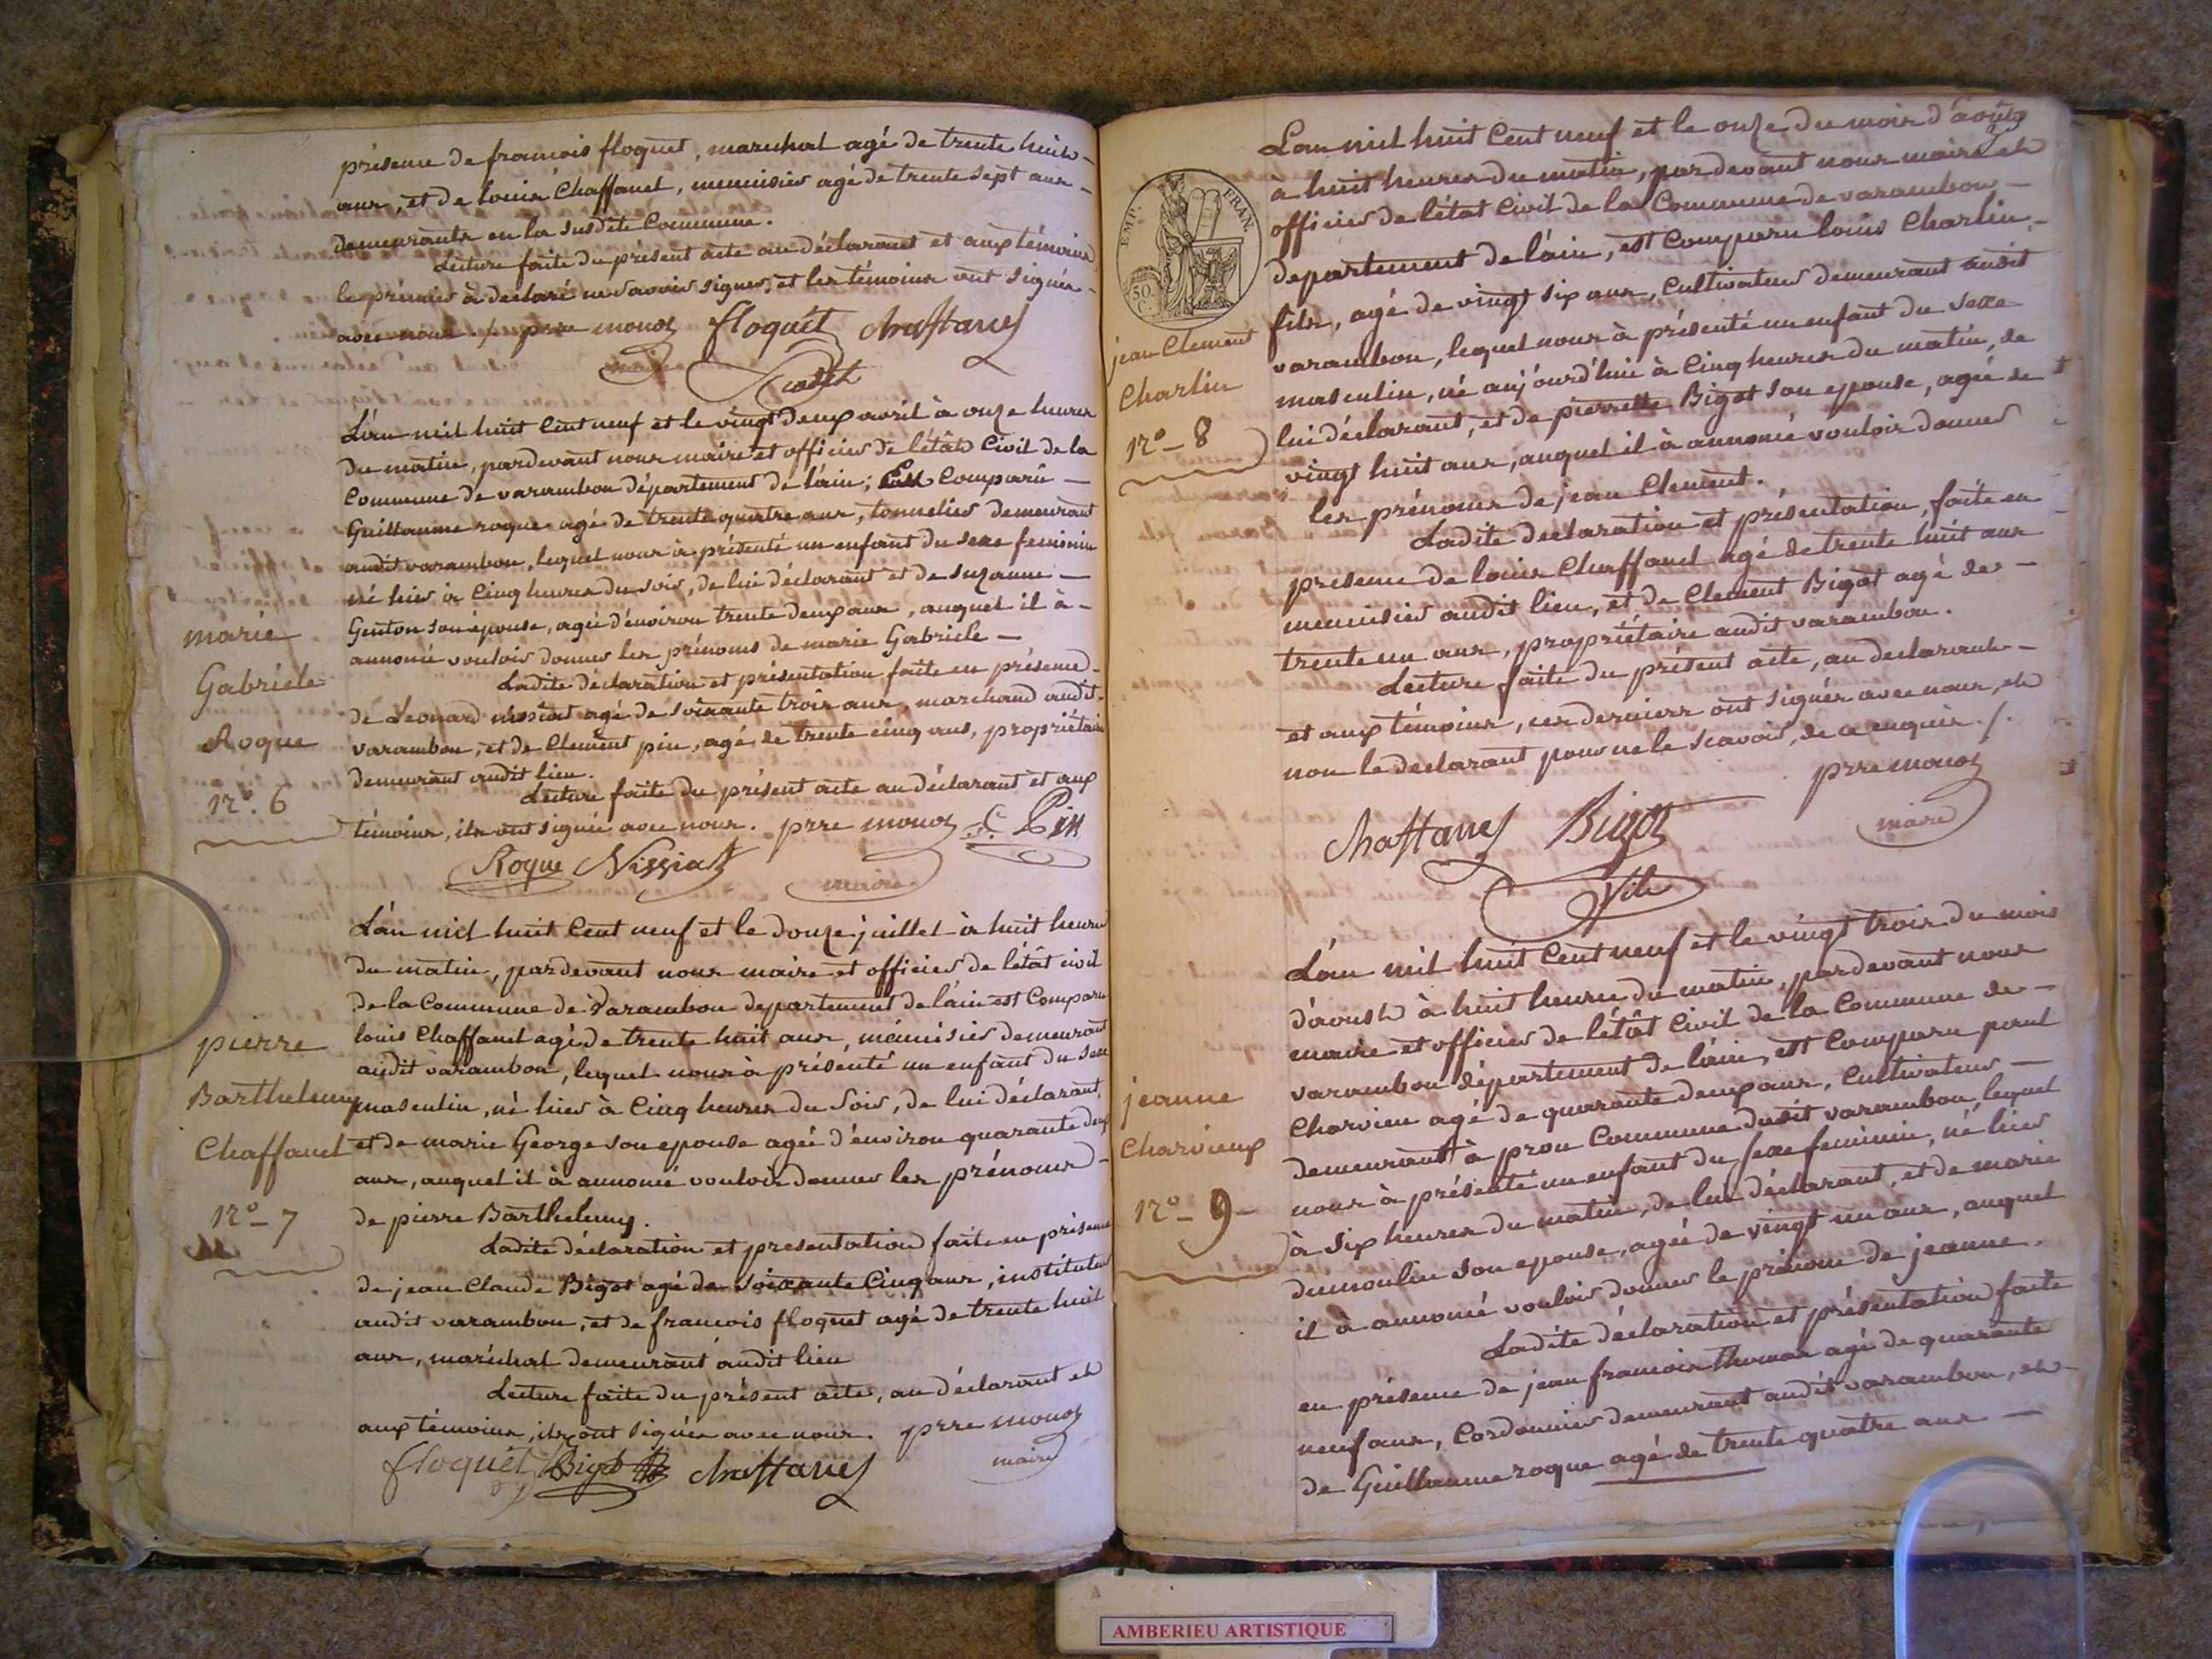 présence de francois floquet, marechal agé de trente huit
ans, et de louis Chaffanel, menuisier agé de trente sept ans
demeurants en la susdite Commune.
Lecture faite du présent acte au déclarant et aux témoins
le prémier à declaré ne savoir signer, et les témoins ont signés
avec nous ./. prre monoz floquêt chaffanel
cadet
L'an mil huit Cent neuf et le vingt deux avril à onze heures
du matin, pardevant nous maire et officier de l'étât Civil de la
Commune de varambon département de l'ain; Est Comparû
Guillaume roque agé de trente quatre ans, tonnelier demeurant
audit varambon, lequel nous à présenté un enfant du sexe feminin
né hier à Cinq heures du soir, de lui déclarant et de suzanne
Genton son épouse, agée d'environ trente deux ans, auquel il à
annoncé vouloir donner les prénoms de marie Gabriele
Ladite déclaration et présentation faite en présence
de Leonard nissiat agé de soixante trois ans, marchand audit
varambon, et de Clement pin, agé de trente cinq ans, propriétaire
demeurant audit lieu.
Lecture faite du présent acte au déclarant et aux
témoins, ils ont signés avec nous. prre monoz C. Pin
Roque Nissiat maire
marie
Gabriele
Roque
n°. 6
L'an mil huit Cent neuf et le douze juillet à huit heures
du matin, pardevant nous maire et officier de l'étât civil
de la Commune de Varambon departement de l'ain est Comparu
louis Chaffanel agé de trente huit ans, menuisier demeurant
audit varambon, lequel nous à présenté un enfant du sexe
masculin, né hier à Cinq heures du Soir, de lui déclarant,
et de marie George son epouse agée d'environ quarante deux
ans, auquel il à annoncé vouloir donner les prénoms
de pierre Barthelemy.
Ladite déclaration et presentation faite en présence
de jean Claude Bigot agé de soixante Cinq ans, instituteur
audit varambon, et de francois floquet agé de trente huit
ans, maréchal demeurant audit lieu
Lecture faite du présent acte, au déclarant et
aux témoins, ils ont signés avec nous. prre monoz
floquêt Bigot chaffanel maire
pierre
Barthelemy
Chaffanel
n°- 7
EMP. FRAN.
50. C.
L'an mil huit Cent neuf et le onze du mois d'août
à huit heures du matin, pardevant nous maire et
officier de l'état Civil de la Commune de varambon
departement de l'ain, est Comparu louis Charlin
fils, agé de vingt six ans, Cultivateur demeurant audit
varambon, lequel nous à présenté un enfant du sexe
masculin, né aujourd'hui à Cinq heures du matin, de
lui déclarant, et de pierrette Bigot son epouse, agée de
vingt huit ans, auquel il à annoncé vouloir donner
les prénoms de jean Clement.
Ladite declaration et présentation, faite en
presence de louis Chaffanel agé de trente huit ans
menuisier audit lieu, et de Clement Bigot agé de
trente un ans, propriétaire audit varambon.
Lecture faite du présent acte, au declarant
et aux témoins, ces derniers ont signés avec nous, et
non le declarant pour ne le scavoir, de ce enquis ./.
prre monoz
chaffanel Bigot maire
jean Clement
Charlin
n°- 8
L'an mil huit Cent neuf et le vingt trois du mois
d'aoust à huit heures du matin, pardevant nous
maire et officier de l'étât Civil de la Commune de
varambon département de l'ain, est Comparu paul
Charvieu agé de quarante deux ans, Cultivateur
demeurant à prou Commune dudit varambon, lequel
nous à présenté un enfant du sexe feminin, né hier
à six heures du matin, de lui déclarant, et de marie
dumoulin son epouse, agée de vingt un ans, auquel
il à annoncé vouloir donner le prénom de jeanne.
Ladite déclaration et présentation faite
en présence de jean francois thomas agé de quarante
neuf ans, Cordonnier demeurant audit varambon, et
de Guillaume roque agé de trente quatre ans
jeanne
Charvieux
n°- 9
AMBERIEU ARTISTIQUE